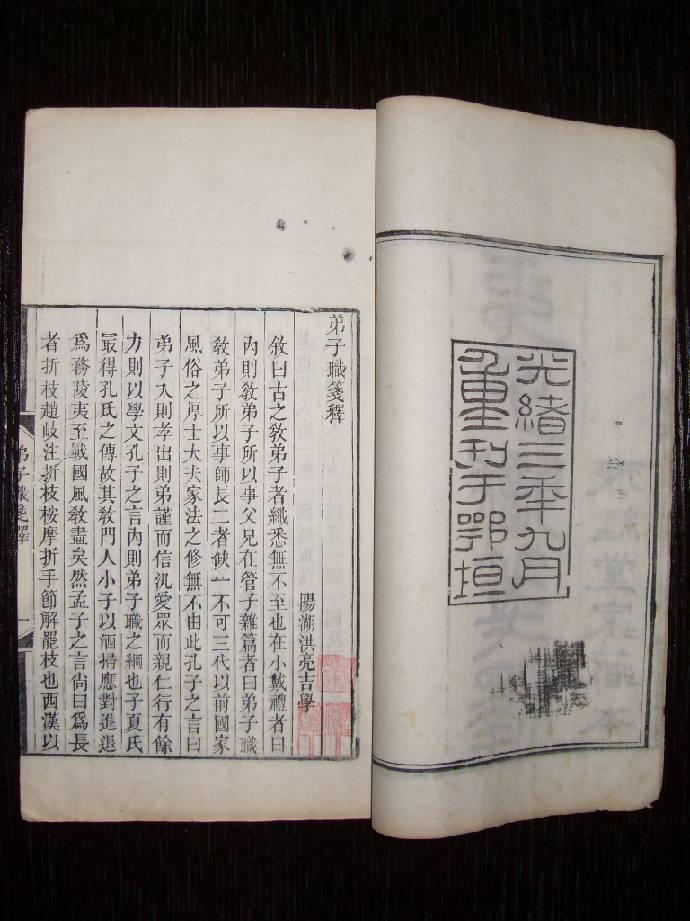 光緒三年九月
重刊于鄂垣
弟子職箋釋
陽湖洪亮吉學
敘曰古之敎弟子者纖悉無不至也在小戴禮者曰
內則敎弟子所以事父兄在管子雜篇者曰弟子職
敎弟子所以事師長二者缺一不可三代以前國家
風俗之厚士大夫家法之修無不由此孔子之言曰
弟子入則孝出則弟謹而信汎愛眾而親仁行有餘
力則以學文孔子之言內則弟子職之綱也子夏氏
最得孔氏之傳故其敎門人小子以洒掃應對進退
爲務陵夷至戰國風敎盡矣然孟子之言尙曰爲長
者折枝趙岐注折枝桉摩折手節解罷枝也西漢以
弟子職箋釋
一